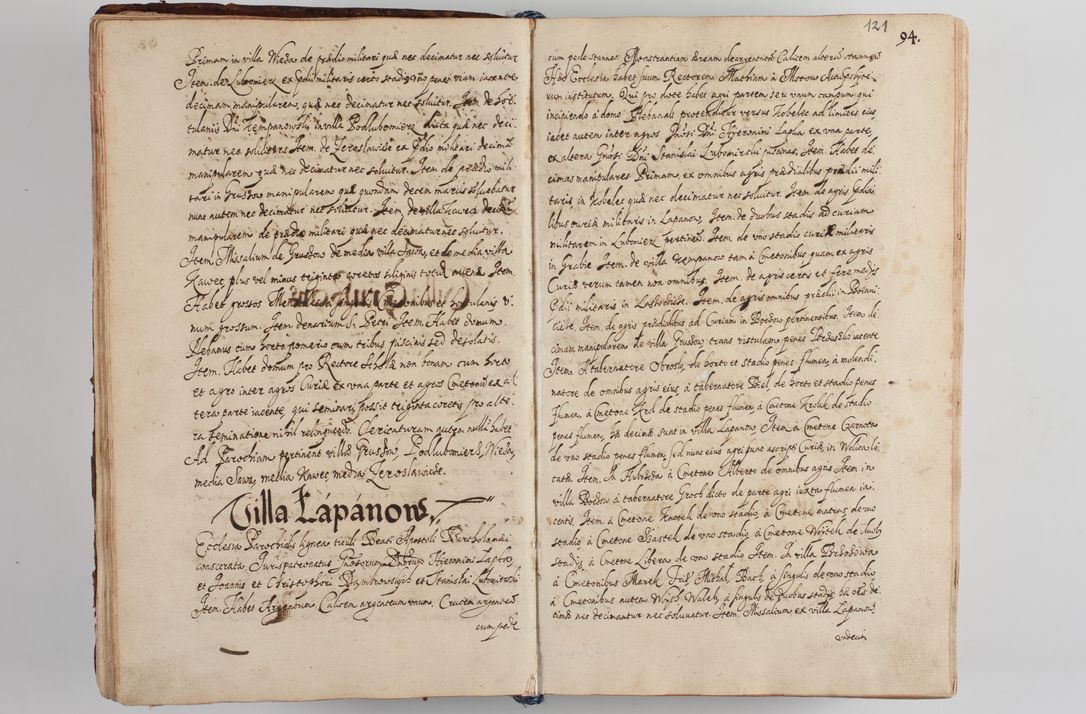 Primam in villa Wieda de prædio militari quæ nec decimatur nec solvitur
Item. de Lubomierz ex prædii militaris certo stadio uno penes viam iacente
decimam manipularem, quæ nec decimatur nec solvitur. Item de hor-
tulaniis Dni Rempanowsky in villa Podlubomierz dicta quæ nec deci-
matur nec solvitur. Item. de Zeroslawice ex prædio militari decima
manipularem quæ nec decimatur nec solvitur. Item de prædio mili-
tari in Grusdow manipularem quæ quondam decem marcis solvebatur
nunc autem nec decimatur nec solvitur. Item, de villa Kawecz decima
manipularem de prædio militari quæ nec decimatur nec solvitur.
Item. Missalium de Grusdow de media villa Sawa, et de media villa
Kawec plus vel minus triginta coretos siliginis totidem avenæ. Item.
Habet grossos a singulis Cmetonibus et hortulanis
num grossum. Item denarium S. Petri. Item. Habet domum
Plebanus cum horto pomerio cum tribus piscinis sed desolatis.
Item. Habet domum pro Rectore Scholæ non bonam cum horto
et agro inter agros Curiæ ex vna parte et agros Cmetonis ex al-
tera parte iacente, qui seminari possit triginta coretis pro alte-
ra seminatione nihil relinquendo. Clericaturam autem nulli habet
Ad Parochiam pertinent villæ Grusdow, Podlubomierz, Wieda,
media Sawa, media Kawec, media Zeroslawice.
Villa Łápánow
Ecclesia Parochialis lignea tituli Beati Apostoli Bartholomæi
consecrata Iuris patronatus Gnosorum Dnorum Hieronimi Lapka,
et Joannis, et Christophori Dembrowskych et Stanislai Lubomirski
Item. Habet Argentum Calicem argenteum vnum, Crucem argenteam
cum pede
121
94.
cum pede stanneo Monstrantiam æream deargentatam Calicem alterum stanneum
Hæc Ecclesia habet suum Rectorem Mathiam à Mstow
rum institutum. Qui pro dote habet agri partem seu vnum campum qui
incipiendo à domo Plebanali protenditur versus Kobelec ad limites eius
iacet autem inter agros Gnosi Dni Hyeronimi Lapka ex vna parte,
ex altera Gnosi Dni Stanislai Lubomirski piscinas. Item. Habet de-
cimas manipulares Primam, ex omnibus agris prædialibus prædii mili-
taris in Kobelec quæ nec decimatur nec solvitur. Item. de agris prædia-
libus curiæ militaris in Lapanow. Item. de duobus stadiis ad curiam
militarem in Lubomierz pertinen. Item. de vno stadio curiæ militaris
in Grabie. Item. de villa Krempanow tam à Cmetonibus quam ex agris
Curiæ verum tamen non omnibus. Item. de agris certis et fere mediis
prædii militaris in . Item. de agris omnibus prædii in Boiani-
cicze. Item. de agris prædialibus ad Curiam in Boczow pertinentibus. Item de-
cimam manipularem de villa Grusdow trans vistulam penes iacente
Item. A tabernatore Obrosly de horto et stadio penes flumen, à molendi-
natore de omnibus agris eius, à tabernatore Biel, de horto et stadio penes
flumen, à Cmetone Krol de stadio penes flumen, à Cmetone Krolik de stadio
penes flumen, hæ decimæ sunt in villa Lapanow. Item à Cmetone Czarnota
de vno stadio penes flumen, sed nunc eius agri puno ascripti Curiæ, in Wolica lo-
cata. Item. In à Cmetone Alberto de omnibus agris Item in
villa Boczow à tabernatore Groch dicto de parte agri iuxta flumen ia-
centis, Item. à Cmetone Knotek de vno stadio, à Cmetone matens de vno
stadio, à Cmetone Piastek de vno stadio, à Cmetone Wojtek de duobus
stadiis, à Cmetone Libera de vno stadio. Item. In villa
à Cmetonibus Marek, Michal, Bach, à singulis de vno stadio
à Cmetonibus autem Wojth Walek, à singulis de duobus stadiis, hæ oēs de-
cimæ nec decimantur nec solvuntur. Item. Missalium ex villa Lapanow